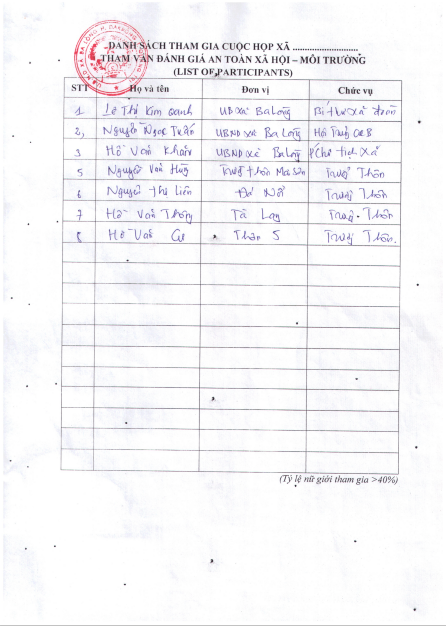 DANH SÁCH THAM GIA CUỘC HỌP XÃ ..........................
THAM VẤN ĐÁNH GIÁ AN TOÀN XÃ HỘI – MÔI TRƯỜNG
(LIST OF PARTICIPANTS)
STT Họ và tên Đơn vị Chức vụ
1 Lê Thị Kim Oanh UB xã Ba Lòng Bí thư xã đoàn
2, Nguyễn Ngọc UBND xã Ba Lòng Hội
3 Hồ Văn UBND xã Ba Lòng P Chủ tịch xã
5 Nguyễn Văn Hùng Thôn Trưởng Thôn
6 Nguyễn Thị Liên Đá Nổi Trưởng Thôn
7 Hồ Văn Thông Tà Lang Trưởng Thôn
8 Hồ Văn Cư Thôn 5 Trưởng Thôn.
(Tỷ lệ nữ giới tham gia >40%)